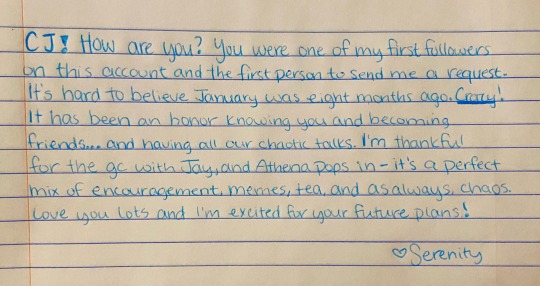 CJ! How are you? You were one of my first followers
on this account and the first person to send me a request.
It's hard to believe January was eight months ago. Crazy!
It has been an honor knowing you and becoming
friends... and having all our chaotic talks. I'm thankful
for the gc with Jay, and Athena pops in - it's a perfect
mix of encouragement, memes, tea, and as always, chaos.
Love you lots and I'm excited for your future plans!
♡Serenity